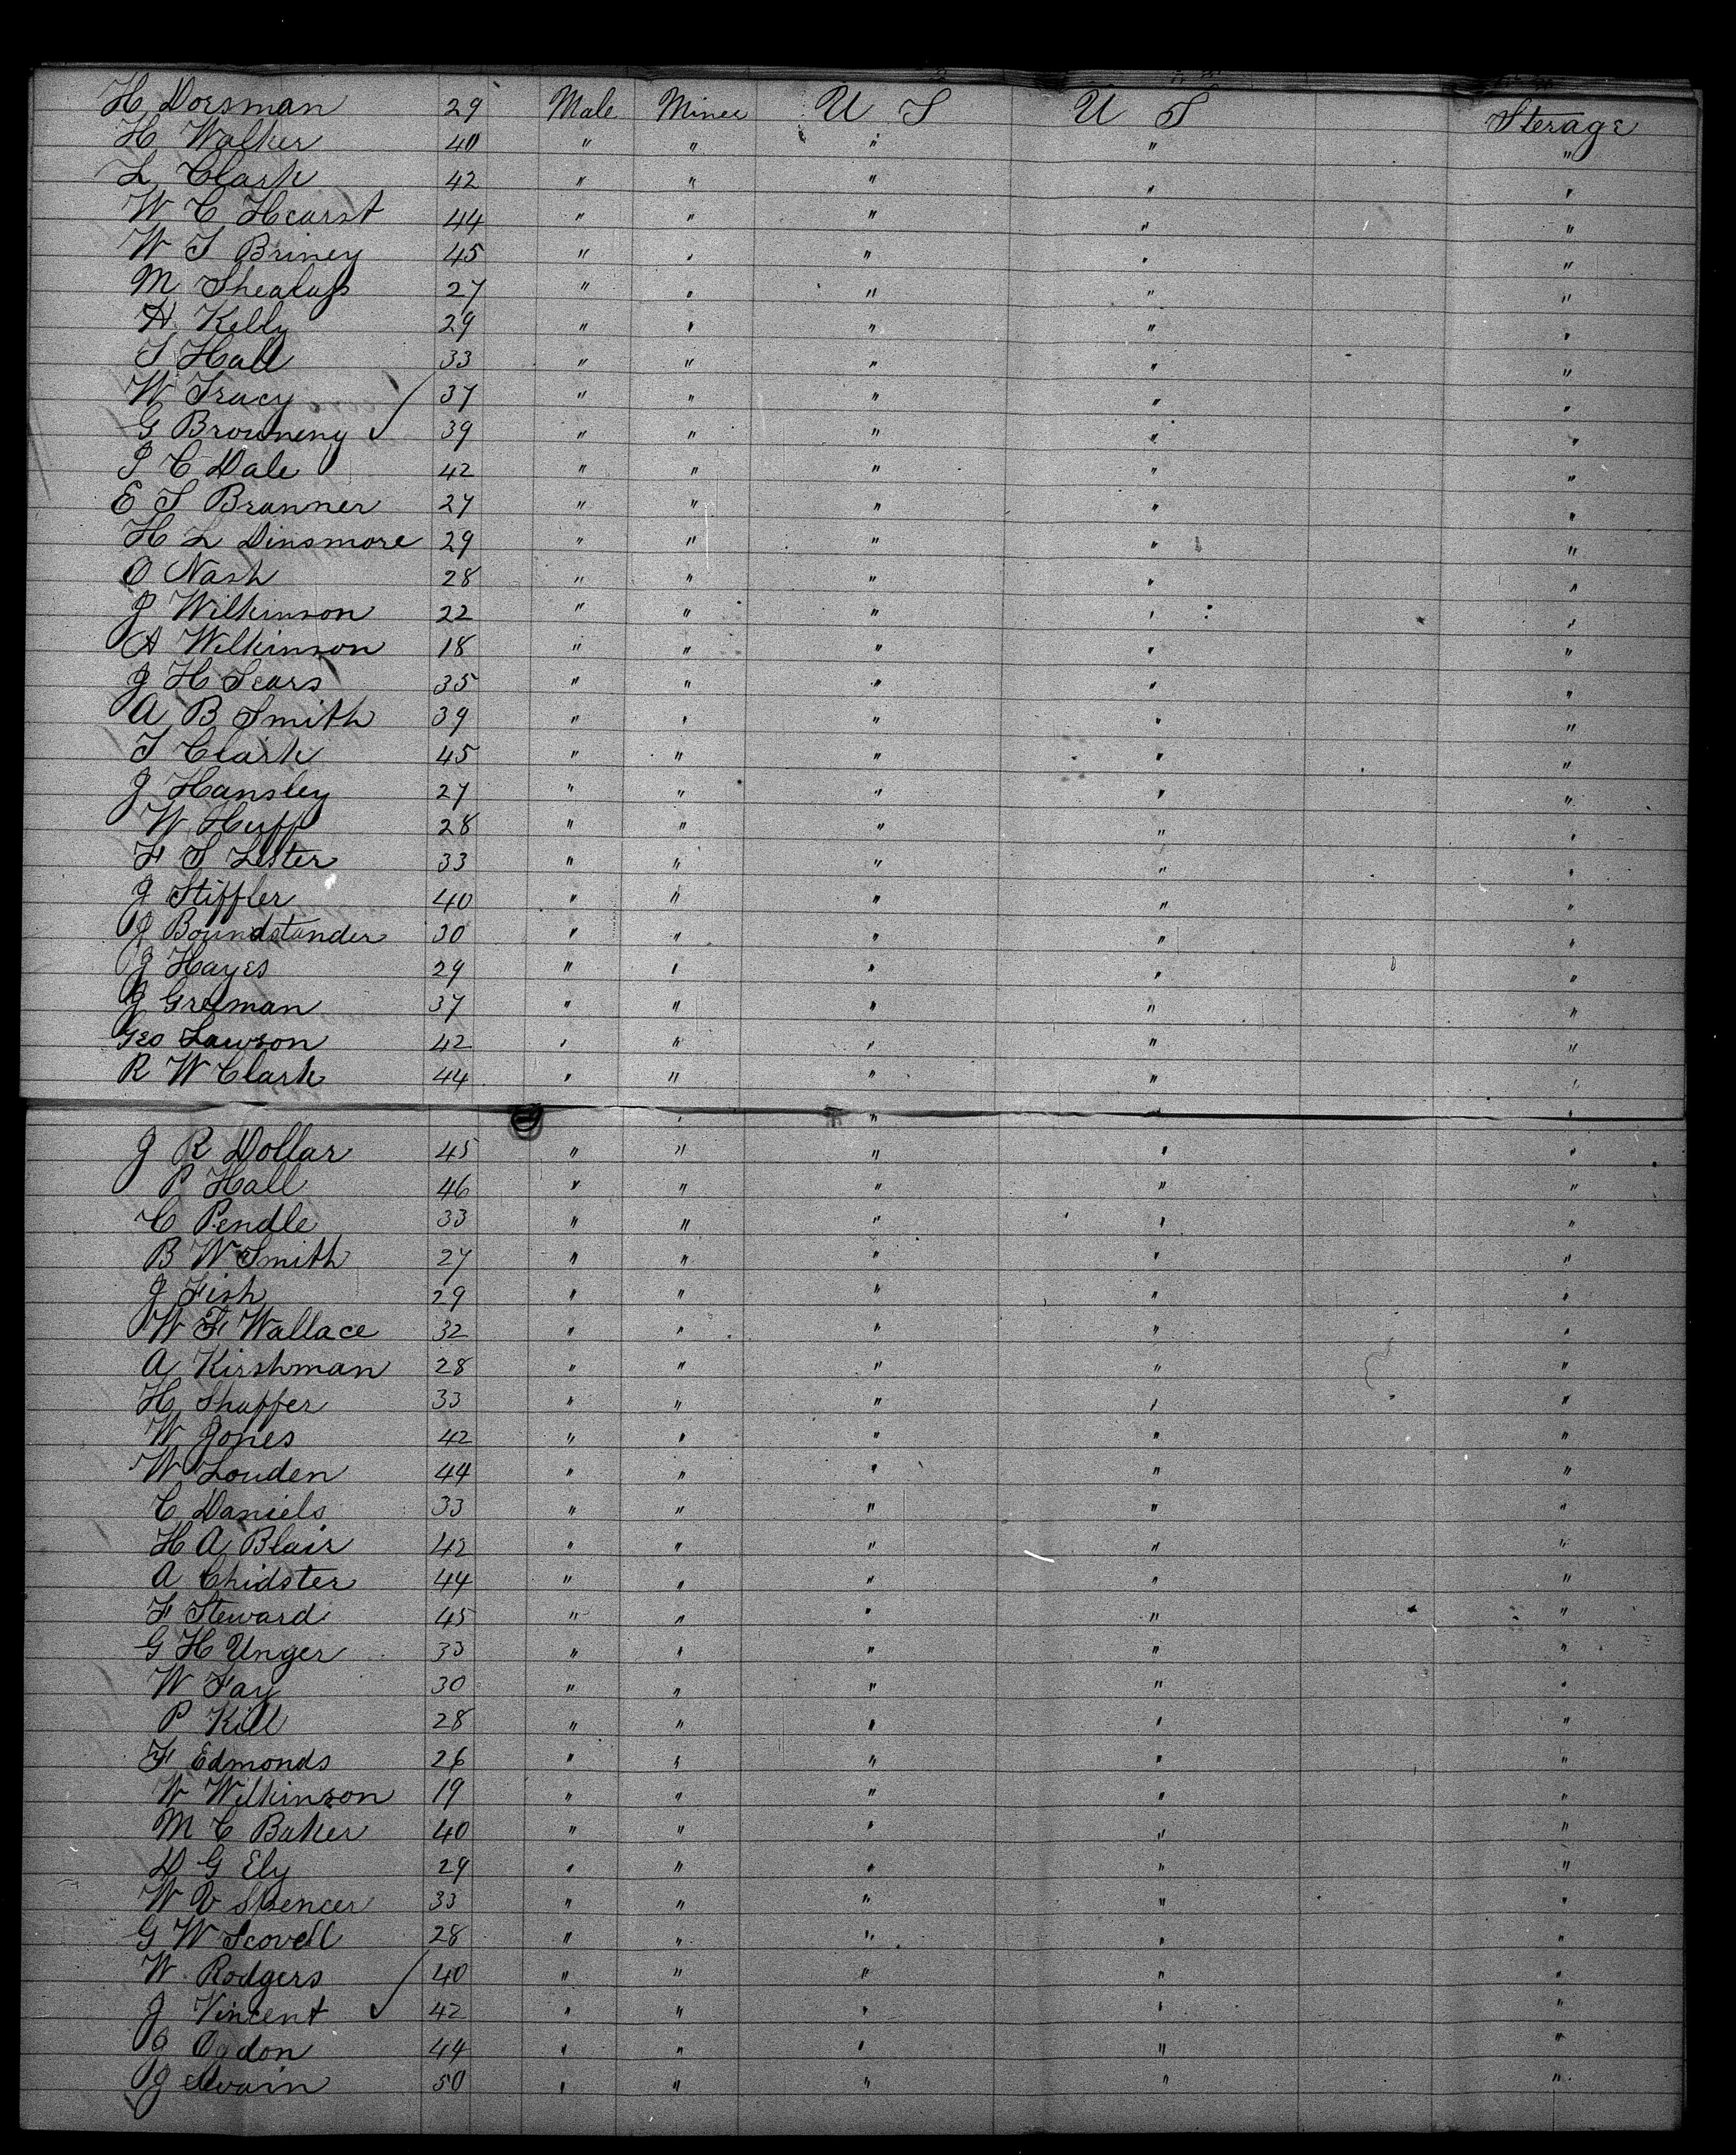 H Dorsman 29 Male Miner U S U S Sterage
H Walker 40 " " " " "
L Clark 42 " " " " "
W C Hearst 44 " " " " "
W T Briney 45 " " " " "
M 27 " " " " "
H Kelly 29 " " " " "
T Hall 33 " " " " "
W Tracy 37 " " " " "
G Browneny 39 " " " " "
P C Dale 42 " " " " "
E T Branner 27 " " " " "
H L Dinsmore 29 " " " " "
O Nash 28 " " " " "
J Wilkinson 22 " " " " "
A Wilkinson 18 " " " " "
J H Sears 35 " " " " "
A B Smith 39 " " " " "
T Clark 45 " " " " "
J Hansley 27 " " " " "
W Huff 28 " " " " "
F S Lester 33 " " " " "
J Stiffler 40 " " " " "
J Boundstander 30 " " " " "
J Hayes 29 " " " " "
J Greeman 37 " " " " "
Geo Lawson 42 " " " " "
R W Clark 44 " " " " "
" " " "
J R Dollar 45 " " " " "
P Hall 46 " " " " "
C Pendle 33 " " " " "
B W Smith 27 " " " " "
J Fish 29 " " " " "
W F Wallace 32 " " " " "
A Kirshman 28 " " " " "
H Shaffer 33 " " " " "
W Jones 42 " " " " "
W Louden 44 " " " " "
C Daniels 33 " " " " "
H A Blair 42 " " " " "
A Chidster 44 " " " " "
F Steward 45 " " " " "
G H Unger 33 " " " " "
W Fay 30 " " " " "
P Kill 28 " " " " "
F Edmonds 26 " " " " "
W Wilkinson 19 " " " " "
M C Baker 40 " " " " "
D G Ely 29 " " " " "
W V Spencer 33 " " " " "
G W Scovell 28 " " " " "
W Rodgers 40 " " " " "
J Vincent 42 " " " " "
Ogdon 44 " " " " "
J Swain 50 " " " " "